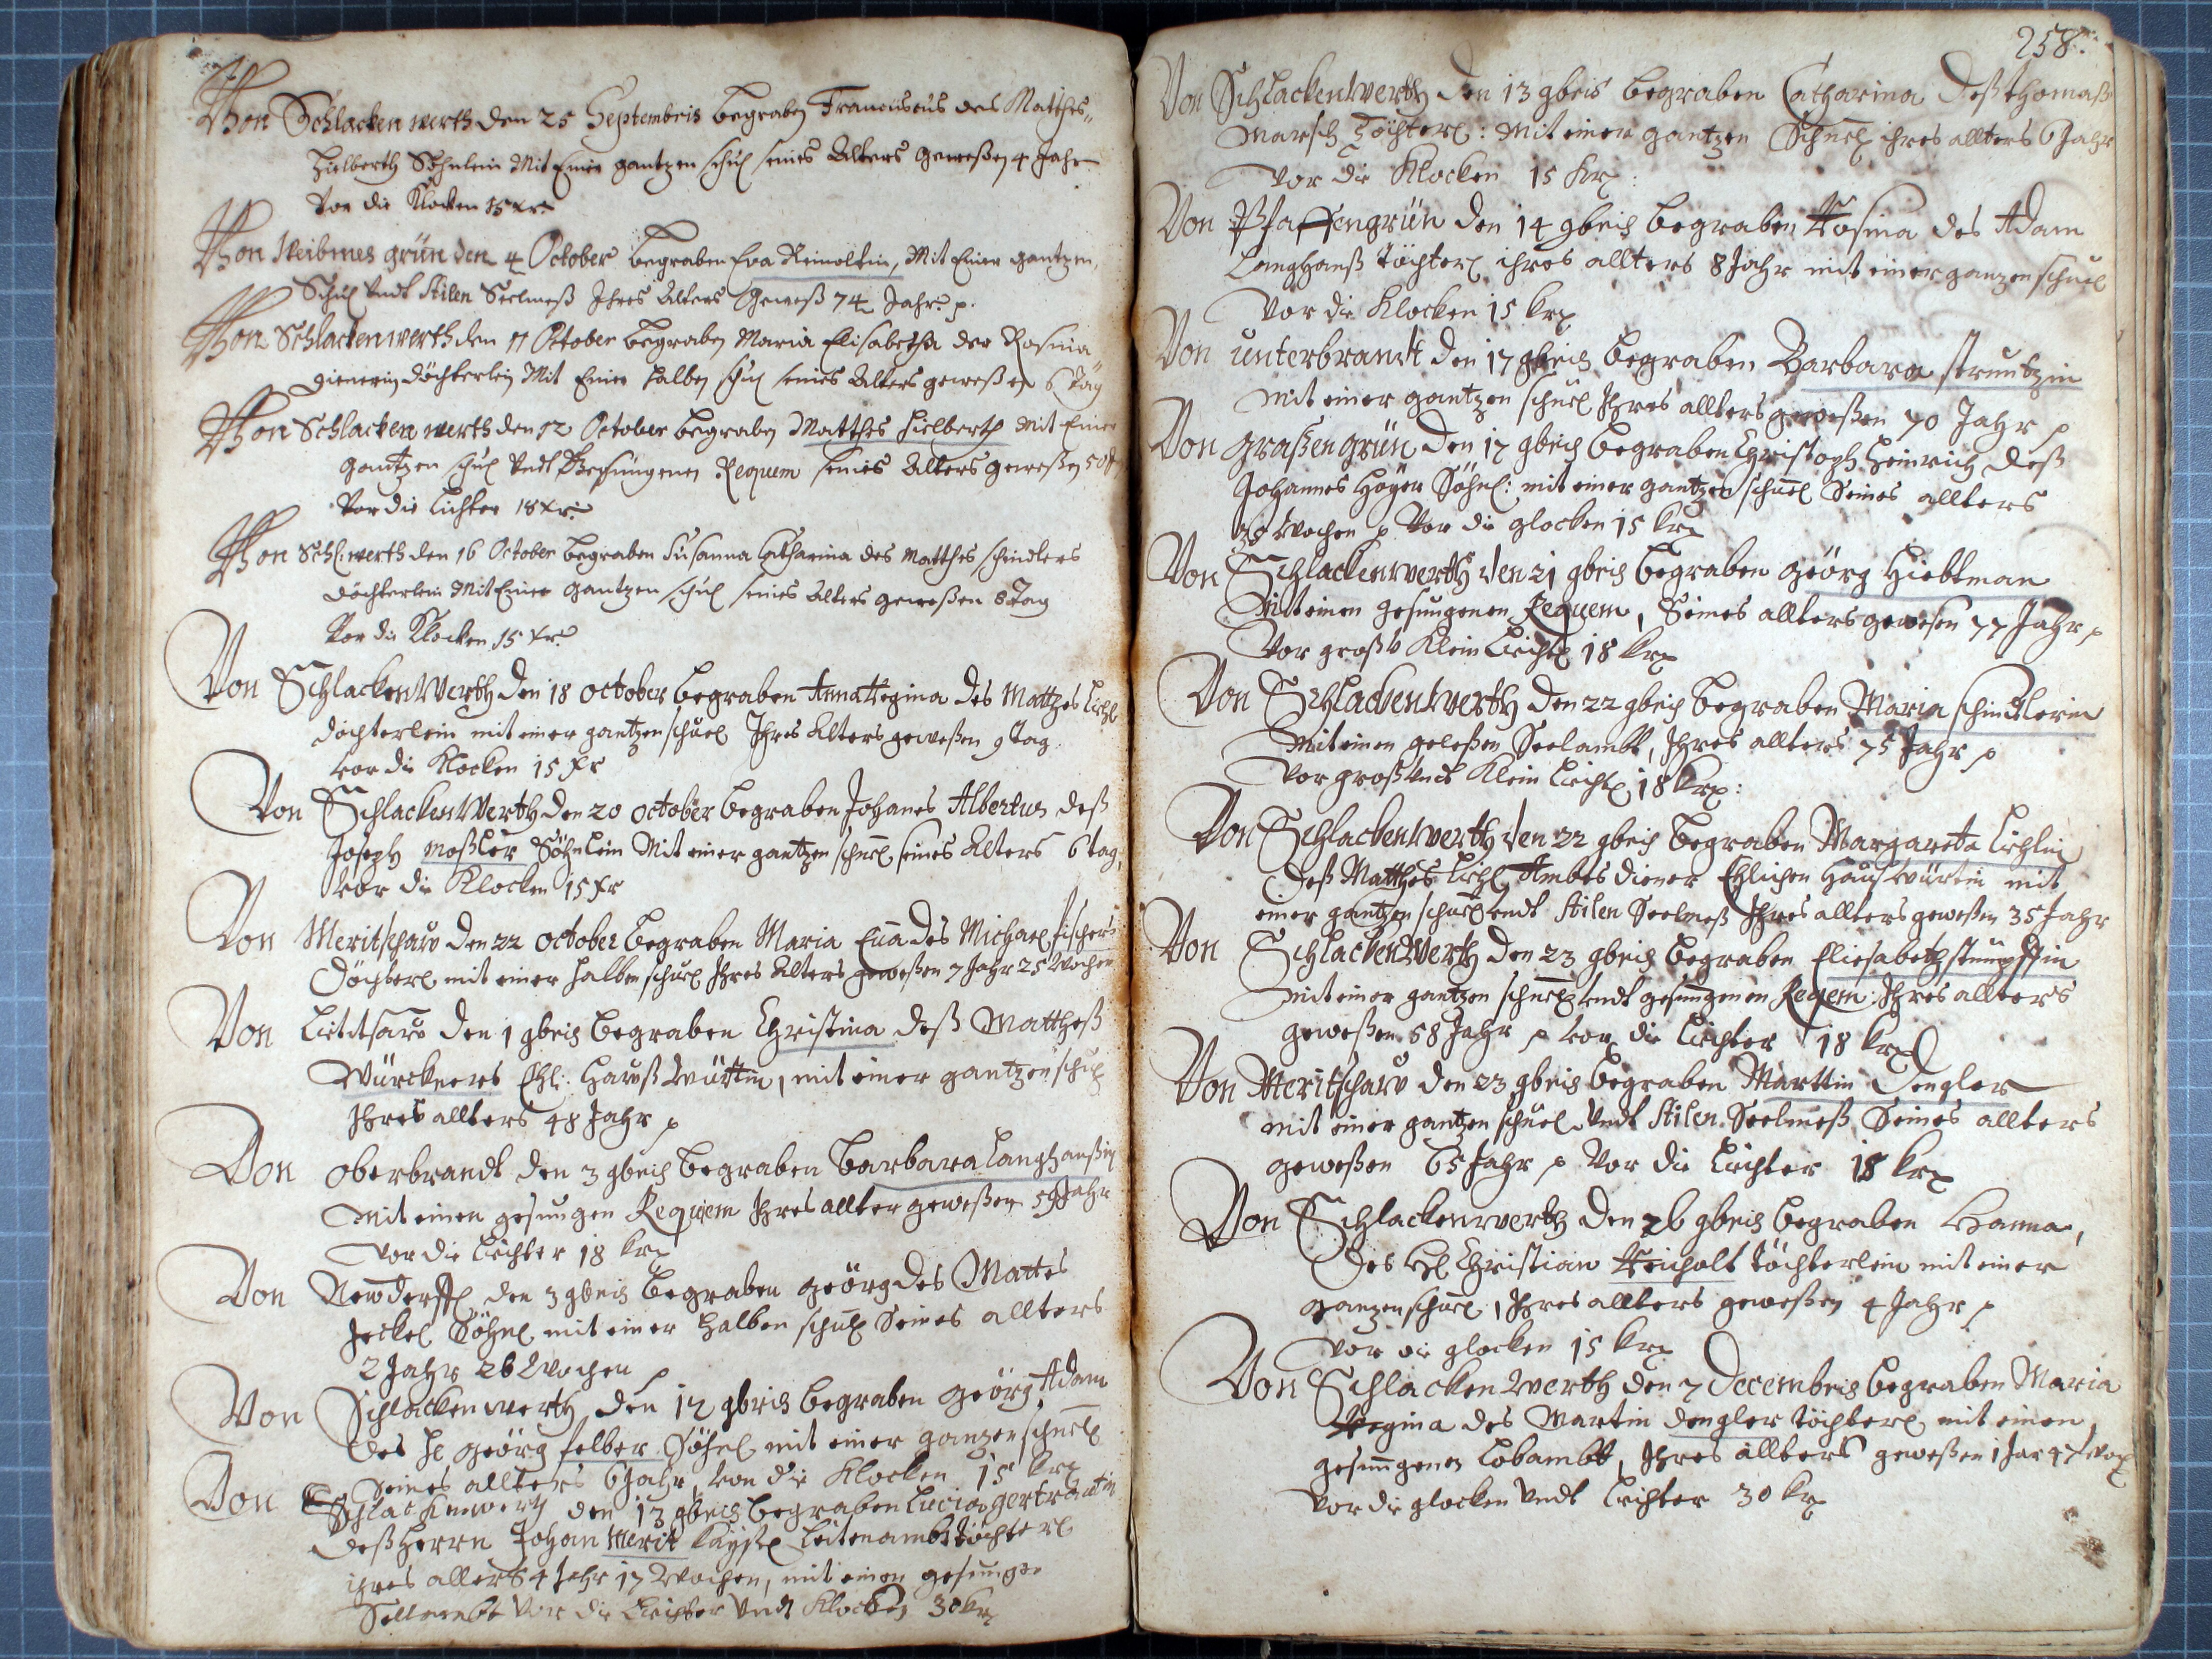 Von Schlackenwerth den 25 Septembris begraben Franciscus des Matthes
Hielberth Söhnlein Mit Einer gantzen schul seines Alters geweßen 4 Jahr
Vor die Klocken 15 xr.
Von grün den 4 October begraben Eva Reinoltin, Mit Einer gantzen
Schul Vndt Stilen Seelmeß Ihres Alters Geweß 74 Jahr p.
Von Schlackenwerth den 11 October begraben Maria Elisabetha der Rosina
Dienerin Döchterlein Mit Einer halben schul seines Alters geweßen 6 Täg
Von Schlackenwerth den 12 October begraben Matthes Hielberth Mit Einer
gantzen schul Vndt Requiem seines Alters geweßen 50
Vor die Lichter 18 xr.
Von Schl:werth den 16 October begraben Susanna Catharina des Matthes schindlers
Döchterlein Mit Einer gantzen schul seines Alters geweßen 8 Tag
Vor die Klocken 15 xr.
Von Schlackenwerth den 18 October begraben Anna Regina des Matthes Lichl
döchterlein mit einer gantzen schuel Ihres Alters geweßen 9 Tag.
vor die Klocken 15 xr
Von Schlackenwerth den 20 October begraben Johanes Albertus deß
Joseph moßler Söhnlein Mit einer gantzen schuel seines Alters 6 tag,
Vor die Klocken 15 xr
Von Meritschaw den 22 October begraben Maria Eua des Michael fischers
Döchterl mit einer halben schuel Ihres Alters geweßen 7 Jahr 25 Wochen
Von den 1 9bris begraben Christina deß Mattheß
Würckners Ehl: Haußwürttin, mit einer gantzen schul
Ihres allters 48 Jahr p
Von oberbrandt den 3 9bris begraben barbara Langhanßin
Mit einen gesungen Requiem Ihres allter geweßen 59 Jahr
Vor die Lichter 18 krx
Von Newdorff den 3 9bris begraben geörg des Mattes
Jeckel Söhnl mit einer halben schul Seines allters
2 Jahr 26 Wochen p
Von Schlackenwerth den 12 9bris begraben geörg Adam
des H: geörg felber Söhnl mit einer ganzen schuel
Seines allters 6 Jahr, vor die Klocken 15 krx
Von Schlackenwerth den 13 9bris begraben Lucia gertraut
deß Herrn Johan Merit Kayßl Leitenambt töchterl
ihres allters 4 Jahr 17 Wochen, mit einen gesungen
Vor die Lichter Vndt Klocken 30 krx
258.
Von Schlackenwerth den 13 9bris begraben Catharina deß thomaß
Marsch Töchterl: Mit einer gantzen Schuel ihres allters 6 Jahr
Vor die Klocken 15 krx:
Von Pfaffengrün den 14 9bris begraben Rosina des Adam
Langhanß töchterl ihres allters 8 Jahr mit einer ganzen schuel
Vor die Klocken 15 krx
Von unterbrandt den 17 9bris begraben Barbara struntzin
mit einer gantzen schuel Ihres allters geweßen 70 Jahr p
Von graßengrün den 17 9bris begraben Christoph Heinrich deß
Johannes Höger Söhnl: mit einer gantzen schuel Seines allters
30 Wochen p Vor die glocken 15 krx
Von Schlackenwerth den 21 9bris begraben geörg Hiebtman
Mit einen gesungenen Requem, Seines allters gewesen 77 Jahr p
Vor groß v Klein Licht 18 krx
Von Schlackenwerth den 22 9bris begraben Maria schindlerin
Mit einen geleßen Seelambt, Ihres allters 75 Jahr p
Vor groß Vndt Klein Licht 18 krx:
Von Schlackenwerth den 22 9bris begraben Margareta Lichlin
deß Matthes Lichl Ambts diener Ehlichen Haußwürtin mit
einer gantzen schuel Vndt Stilen Seelmeß Ihres allters geweßen 35 Jahr
Von Schlackenwerth den 23 9bris begraben Eliesabeth stümpffin
Mit einer gantzen schuel Vndt gesungenen Reqem: Ihres allters
geweßen 58 Jahr p vor die Lichter 18 krx
Von Meritschaw den 23 9bris begraben Marttin Dengler
mit einer gantzen schuel Vndt Stilen Seelmeß Seines allters
geweßen 65 Jahr p Vor die Lichter 18 krx
Von Schlackenwerth den 26 9bris begraben Hanna,
des H: Christian Reicholt töchterlein mit einer
ganzen schuel, Ihres allters geweßen 4 Jahr p
vor die glocken 15 krx
Von Schlackenwerth den 7 Decembris begraben Maria
Regina des Martin dengler töchterl mit einen
gesungenen Lobambt, Ihres allters geweßen 1 Jar 47 wox
vor die glocken Vndt Lichter 30 krx